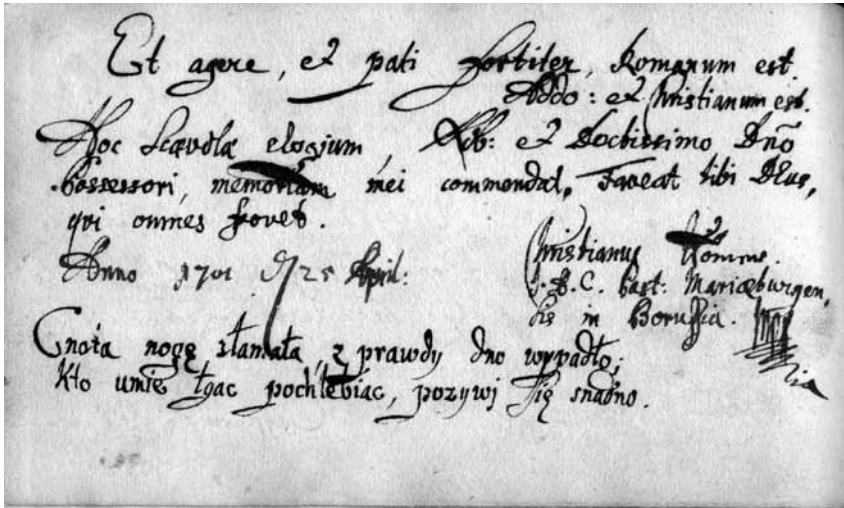 Et agere, et pati fortiter, Romanum est.
Addo: et Christianum est.
Hoc Scævolæ elogium, Nob: et Doctissimo Dno
Possessori, memoriam mei commendat, Faveat tibi Deus,
qvi omnes fovet.
Anno 1701 25 April:
Christianus
C. Past: Mariæburgen,
sis in Borussia.
Cnota nogę złamała, z prawdy dno wypadło;
Kto umie łgac pochlebiac, pozywi się snadno.